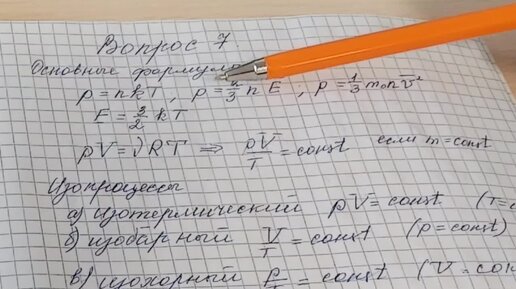 Вопрос 7
Основные формулы
p = nkT, p = 2/3 n E, p = 1/3 m₀nv²
E = 3/2 kT
pV = νRT ⇒ pV/T = const если m = const
Изопроцессы
а) изотермический pV = const (T =
б) изобарный V/T = const (p = const)
в) изохорный p/T = const (V = con